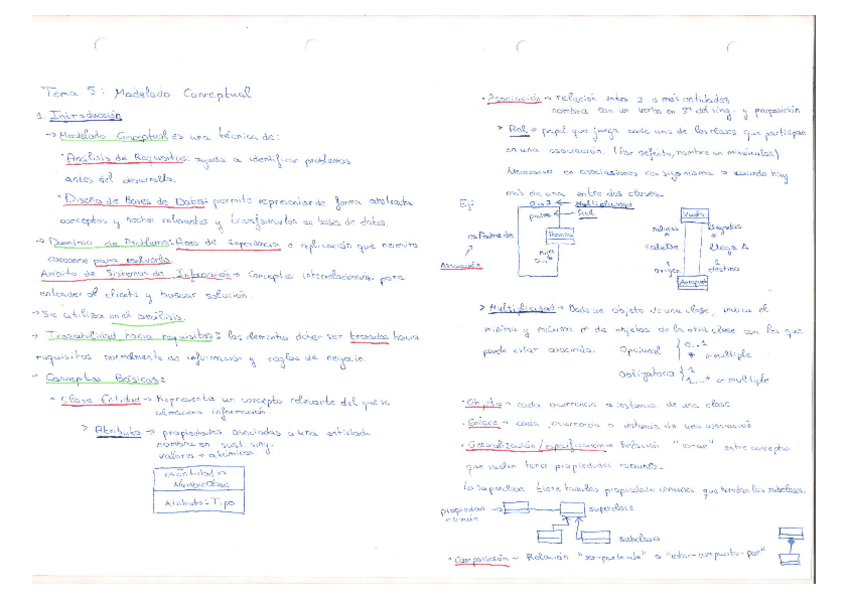 Tema 5: Modelado Conceptual
1. Introducción
→ Modelado Conceptual es una técnica de:
· Análisis de Requisitos: ayuda a identificar problemas
antes del desarrollo.
· Diseño de Bases de Datos: permite representar de forma abstracta
conceptos y hechos relevantes y transformarlos en bases de datos.
→ Dominio de Problema: Área de experiencia o aplicación que necesito
conocerse para resolverlo
Ámbito de Sistemas de Información → Conceptos interrelacionados para
entender al cliente y buscar solución.
→ Se utiliza en el análisis.
→ Trazabilidad hacia requisitos: los elementos deben ser trazados hacia
requisitos normalmente de información y reglas de negocio.
→ Conceptos Básicos:
· Clase Entidad → Representa un concepto relevante del que se
almacena información.
> Atributo → propiedades asociadas a una entidad
nombre en sust. sing.
valores → atómicos
<<Entidad>>
NombreClase
Atributo: Tipo
· Asociación → relación entre 2 o más entidades
nombra con un verbo en 3ª del sing. y preposición
> Rol → papel que juega cada una de las clases que participan
en una asociación. (Por defecto, nombre en minúsculas)
Necesario en asociaciones consigo misma o cuando hay
más de una entre dos clases.
Ej:
0..2 ← Multiplicidad
padre ← Rol
es Padre de
Persona
hijo
Asociación
Vuelo
salidas
llegadas
sale De
llega A
1
1
origen
destino
Aeropuerto
> Multiplicidad → Dado un objeto de una clase, marca el
mínimo y máximo nº de objetos de la otra clase con los que
puede estar asociado.
Opcional { 0..1
* o múltiple
Obligatoria { 1
1...* o múltiple
· Objeto → cada ocurrencia o instancia de una clase
· Enlace → cada ocurrencia o instancia de una asociación
· Generalización/especificación → Relación "es-un" entre conceptos
que suelen tener propiedades comunes.
La superclase tiene todas las propiedades comunes que tendrán las subclases.
superclase
subclase
· Composición → Relación "ser-parte-de" o "estar-compuesto-por"